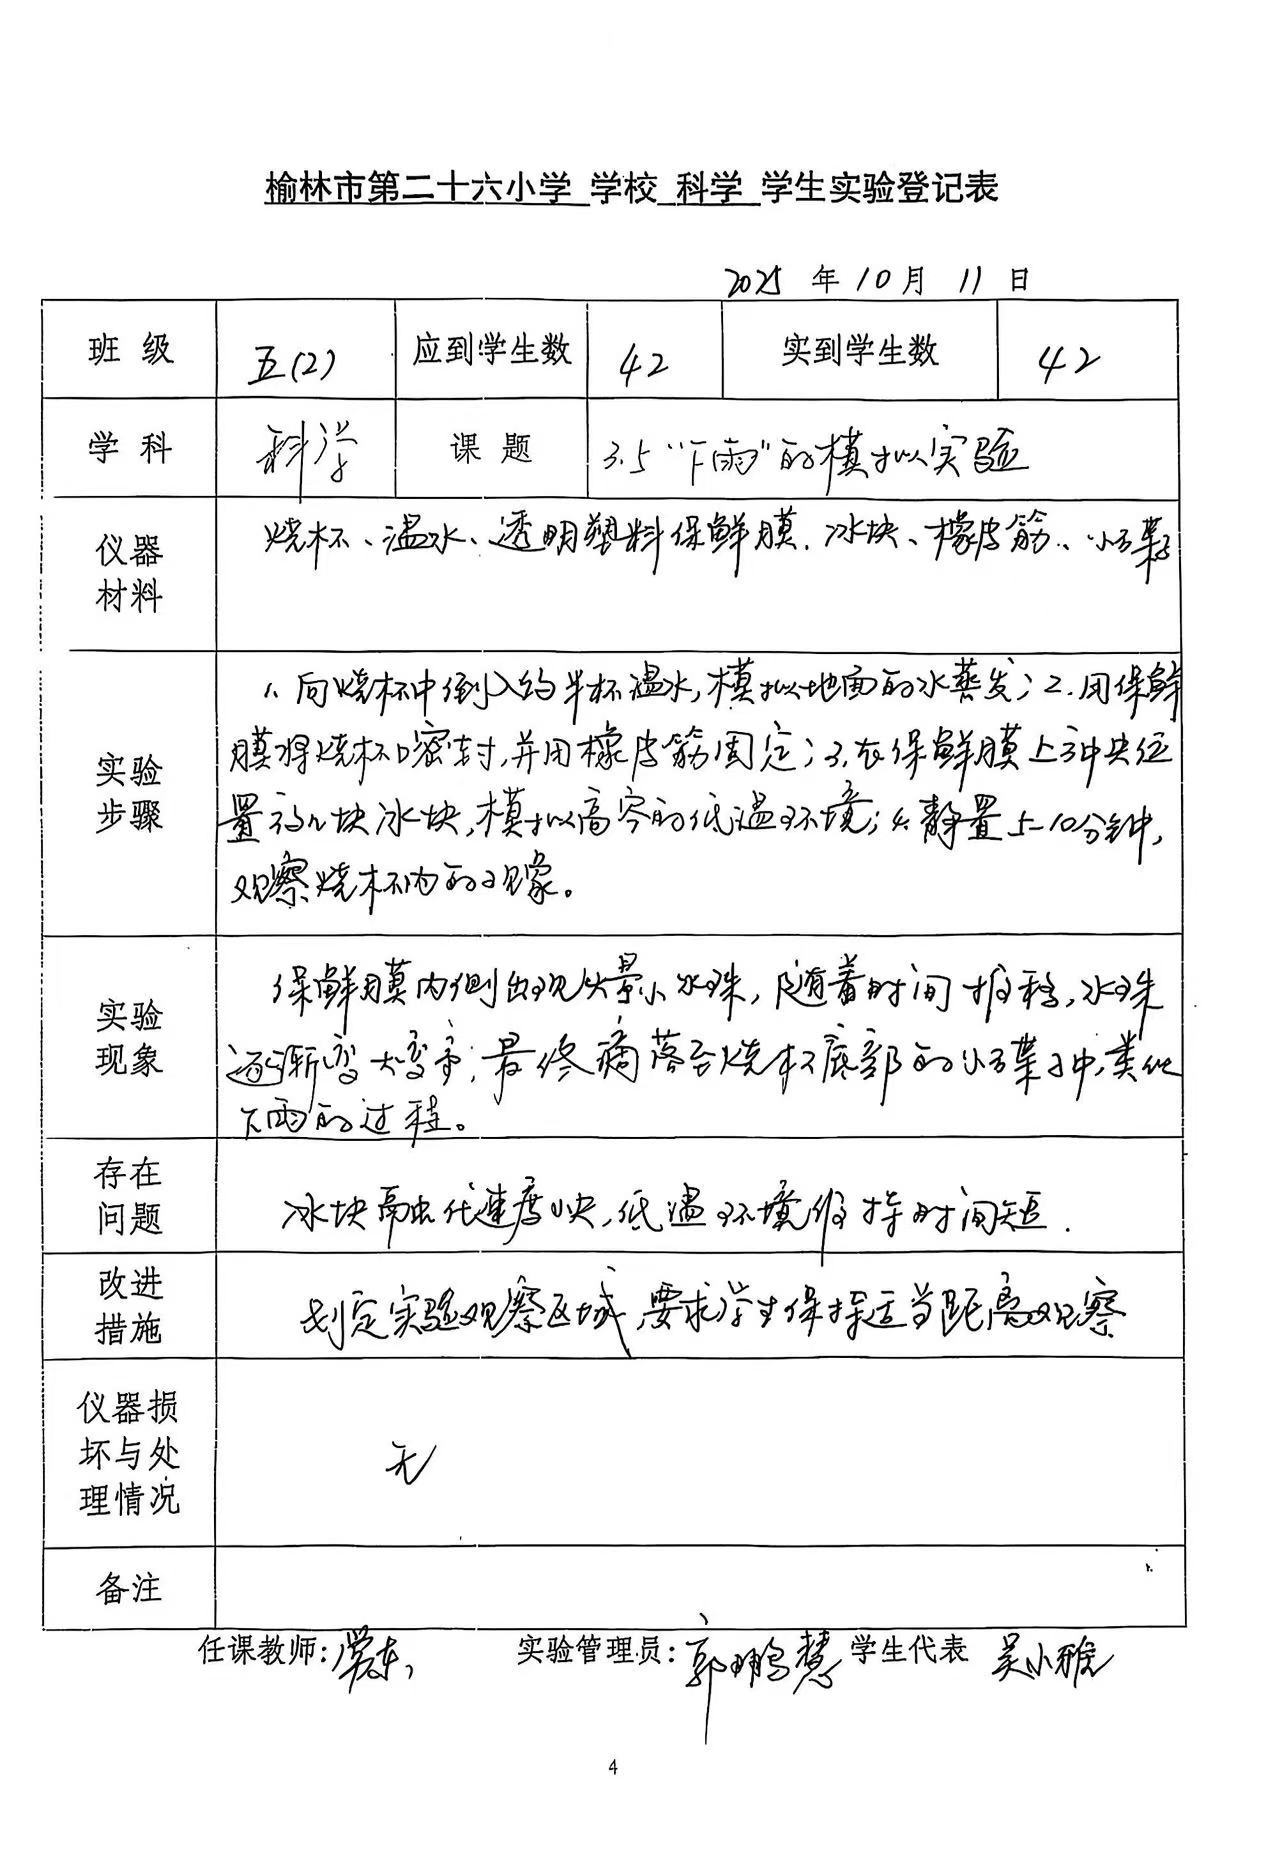 榆林市第二十六小学 学校 科学 学生实验登记表
2025 年 10 月 11 日
班 级 五(2) 应到学生数 42 实到学生数 42
学 科 科学 课 题 3.5 "下雨"的模拟实验
仪器
材料
烧杯、温水、透明塑料保鲜膜、冰块、橡皮筋、小石
实验
步骤
1. 向烧杯中倒入约半杯温水,模拟地面的水蒸发;2.用保鲜
膜将烧杯口密封,并用橡皮筋固定;3.在保鲜膜上方中央位
置放几块冰块,模拟高空的低温环境;4.静置5-10分钟,
观察烧杯内的现象。
实验
现象
保鲜膜内侧出现少量小水珠,随着时间推移,水珠
逐渐变大变重;最终滴落至烧杯底部的小石中,类似
下雨的过程。
存在
问题
冰块融化速度快,低温环境维持时间短.
改进
措施
划定实验观察区域,要求学生保持适当距离观察
仪器损
坏与处
理情况
无
备注
任课教师: 实验管理员:郭鹏慧 学生代表 吴小雅
4